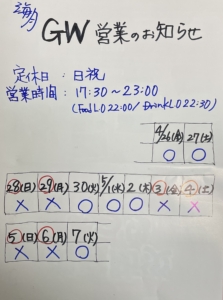 海月
GW 営業のお知らせ
定休日 : 日祝
営業時間 : 17:30〜23:00
(Food L.O 22:00 / Drink L.O 22:30)
4/26(金) 27(土)
○ ○
28(日) 29(月) 30(火) 5/1(水) 2(木) 3(金) 4(土)
× × ○ ○ ○ × ×
5(日) 6(月) 7(火)
× × ○